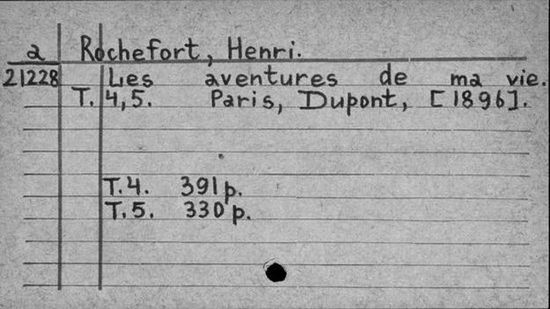 a Rochefort, Henri.
21228 Les aventures de ma vie.
T. 4,5. Paris, Dupont, [1896].
T.4. 391 p.
T.5. 330 p.